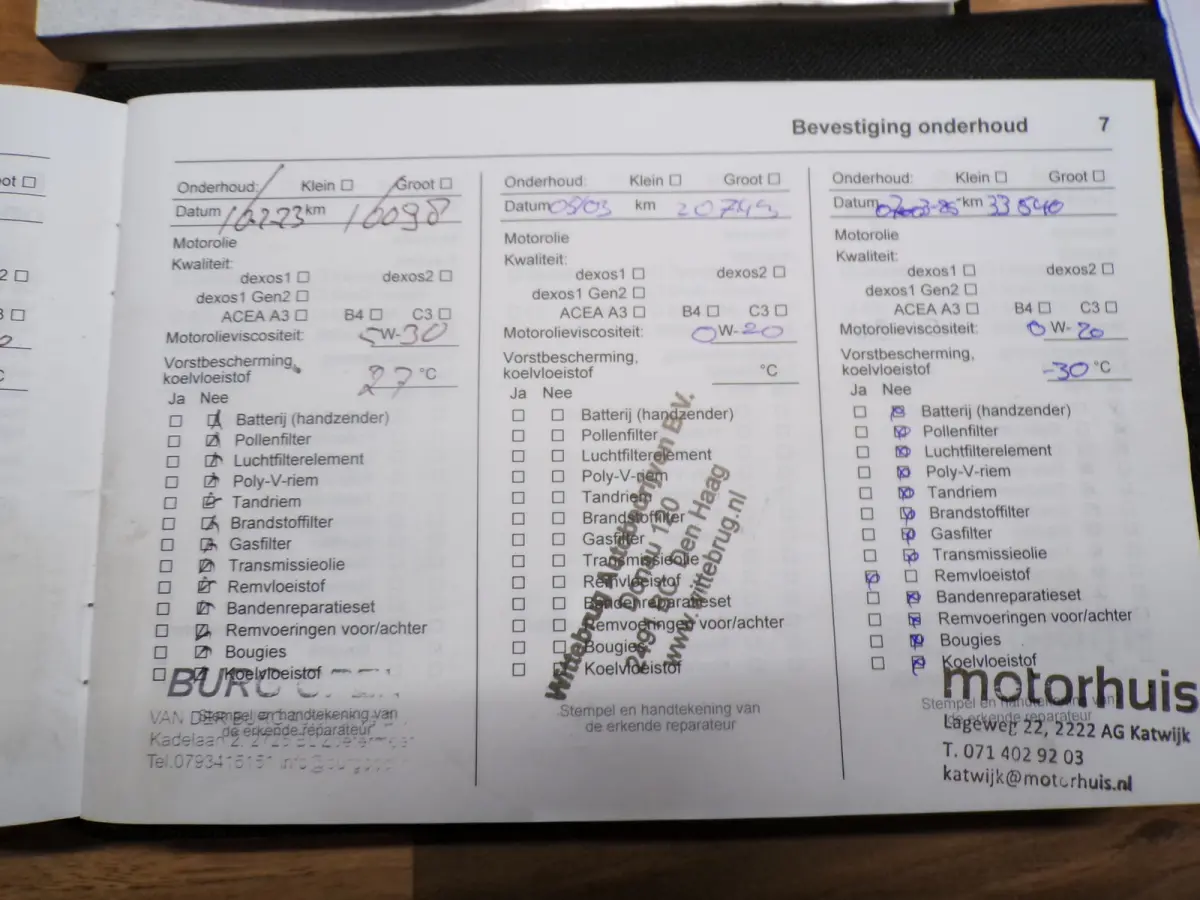 Bevestiging onderhoud 7
ot
2
Onderhoud: Klein Groot
Datum 16223 km 16098
Motorolie
Kwaliteit:
dexos1 dexos2
dexos1 Gen2
ACEA A3 B4 C3
Motorolieviscositeit: 5W-30
Vorstbescherming,
koelvloeistof 27 °C
Ja Nee
Batterij (handzender)
Pollenfilter
Luchtfilterelement
Poly-V-riem
Tandriem
Brandstoffilter
Gasfilter
Transmissieolie
Remvloeistof
Bandenreparatieset
Remvoeringen voor/achter
Bougies
Koelvloeistof
Stempel en handtekening van
de erkende reparateur
BURG
VAN DER BURG
Kadelaan
Onderhoud: Klein Groot
Datum 05/03 km 20743
Motorolie
Kwaliteit:
dexos1 dexos2
dexos1 Gen2
ACEA A3 B4 C3
Motorolieviscositeit: 0W-20
Vorstbescherming,
koelvloeistof °C
Ja Nee
Batterij (handzender)
Pollenfilter
Luchtfilterelement
Poly-V-riem
Tandriem
Brandstoffilter
Gasfilter
Transmissieolie
Remvloeistof
Bandenreparatieset
Remvoeringen voor/achter
Bougies
Koelvloeistof
Stempel en handtekening van
de erkende reparateur
Wittebrug Autobedrijven B.V.
Donau 120
2491 BC Den Haag
www.wittebrug.nl
Onderhoud: Klein Groot
Datum 03-25 km 33540
Motorolie
Kwaliteit:
dexos1 dexos2
dexos1 Gen2
ACEA A3 B4 C3
Motorolieviscositeit: 0W-20
Vorstbescherming,
koelvloeistof -30 °C
Ja Nee
Batterij (handzender)
Pollenfilter
Luchtfilterelement
Poly-V-riem
Tandriem
Brandstoffilter
Gasfilter
Transmissieolie
Remvloeistof
Bandenreparatieset
Remvoeringen voor/achter
Bougies
Koelvloeistof
Stempel en handtekening van
de erkende reparateur
motorhuis
Lageweg 22, 2222 AG Katwijk
T. 071 402 92 03
katwijk@motorhuis.nl